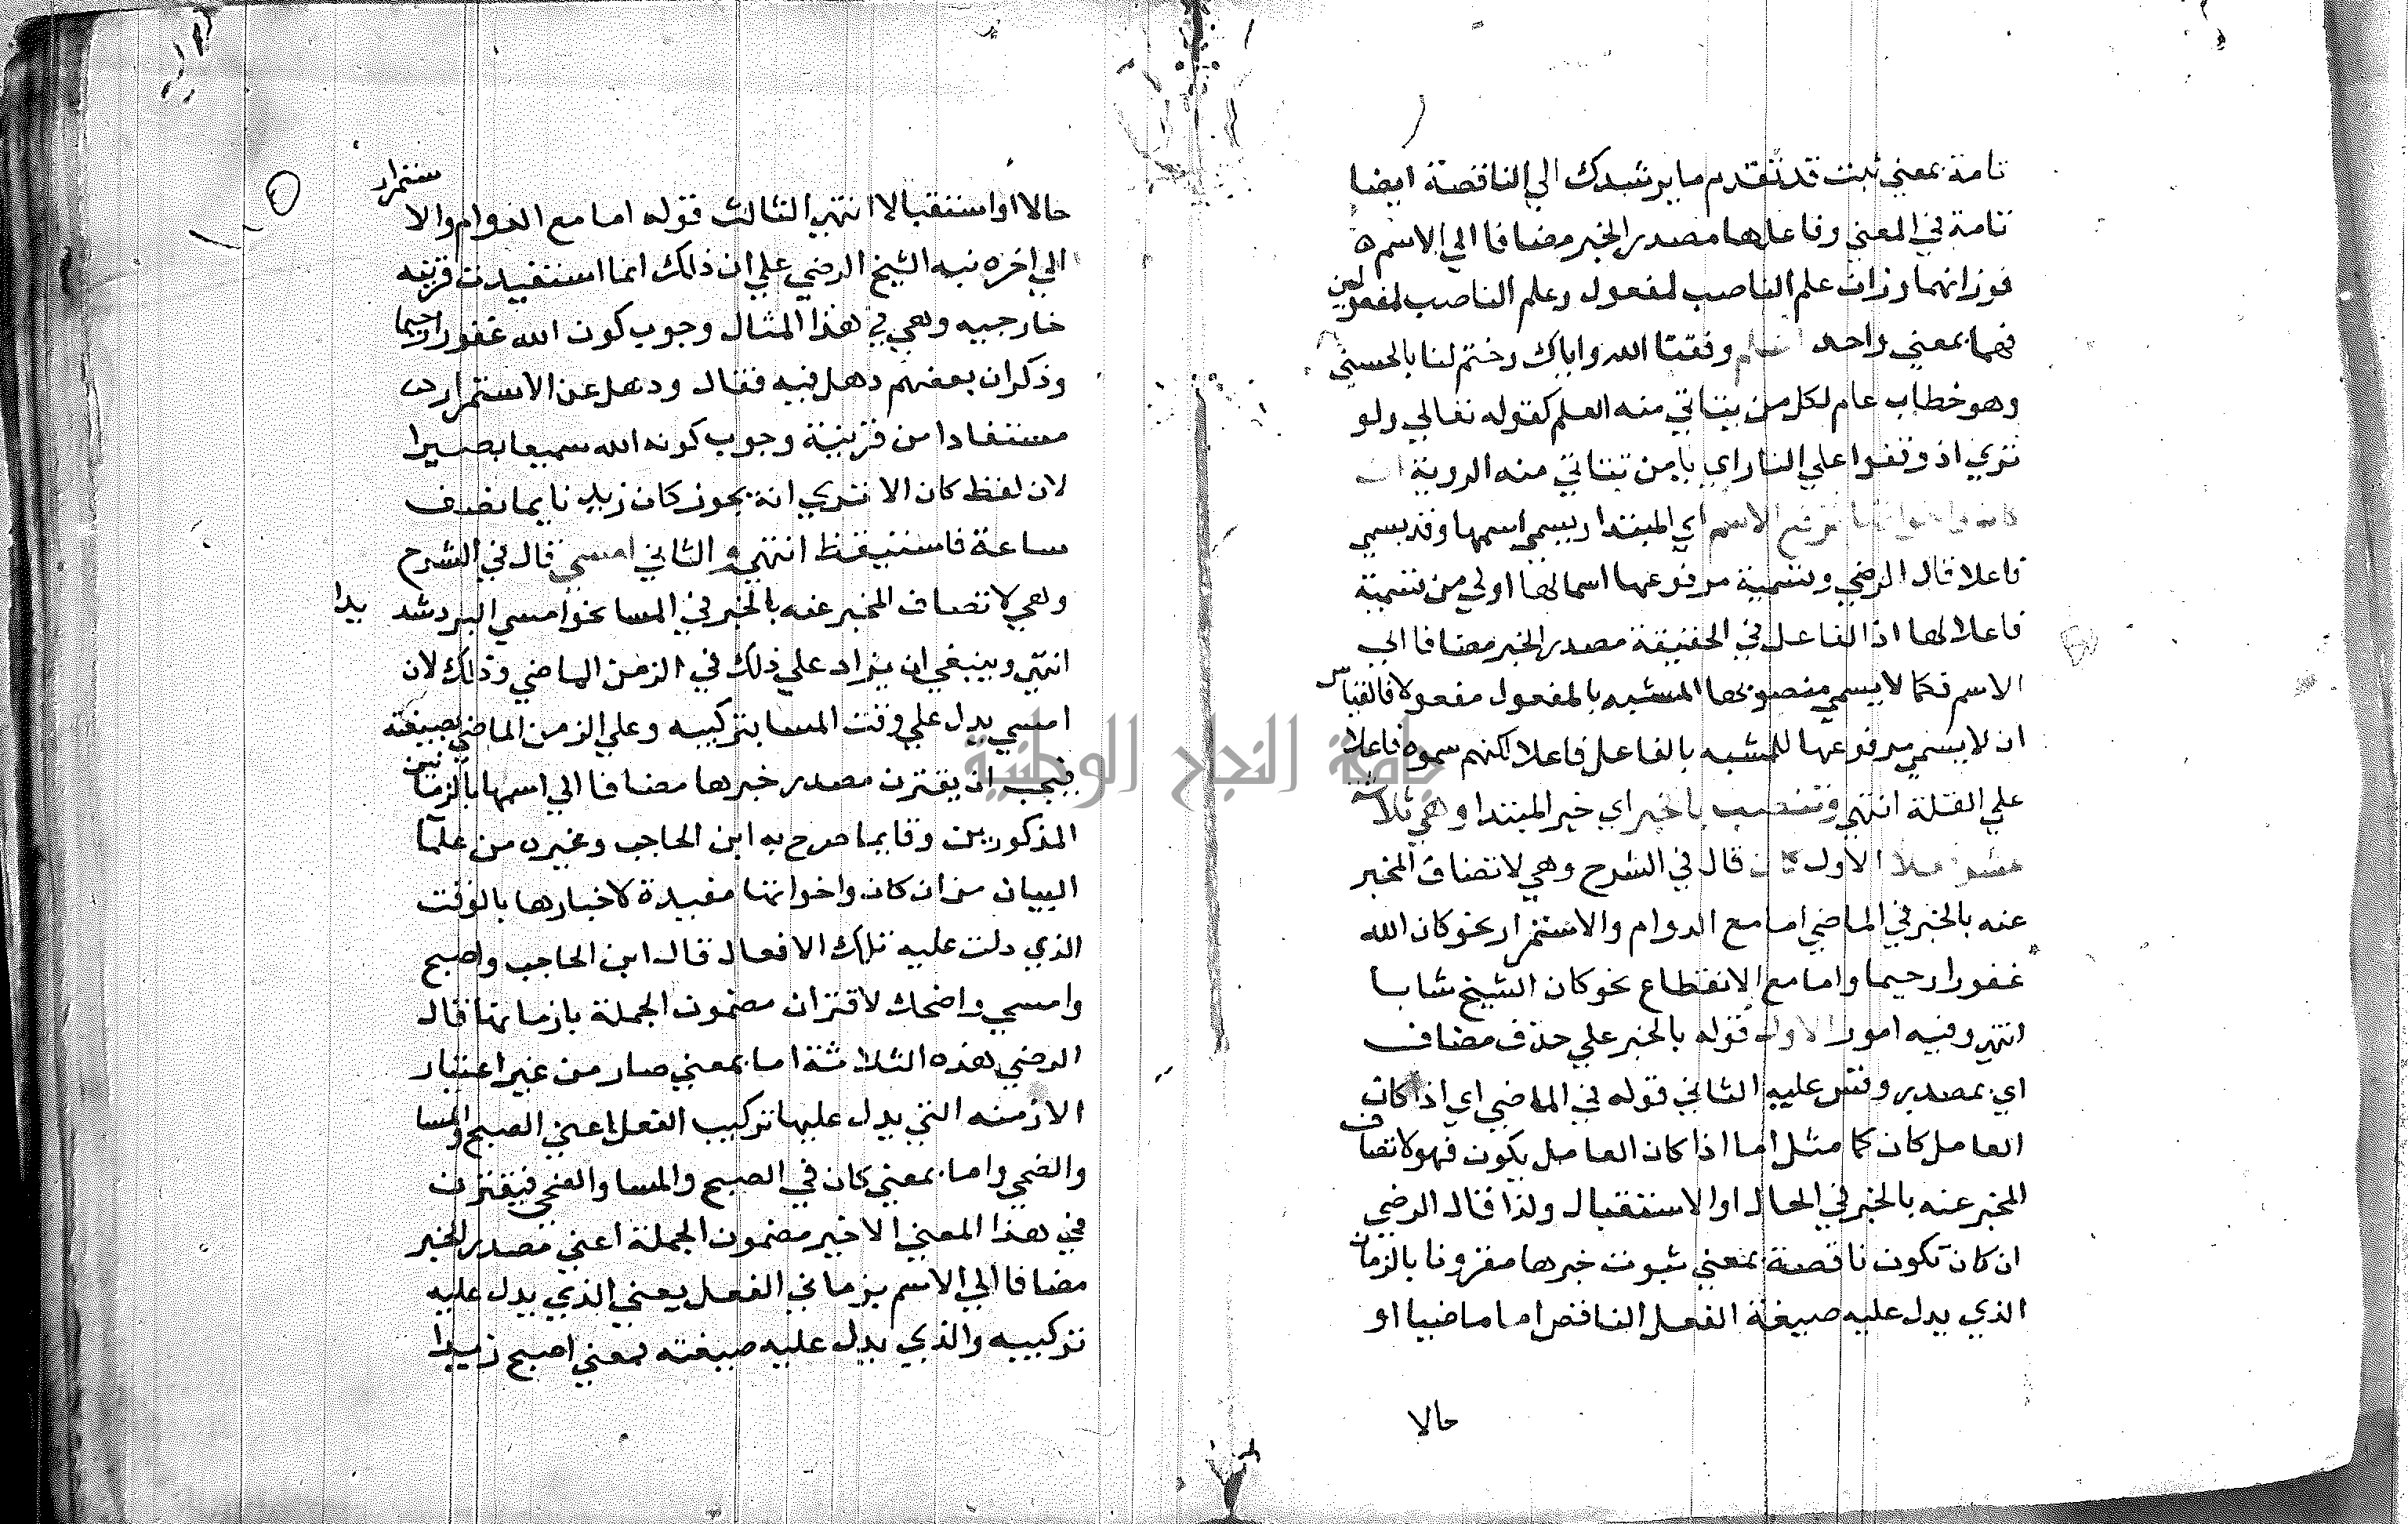 تامة بمعني ثبت قد تقدم ما يرشدك الي الناقصة ايضا
تامة في المعني وفاعلها مصدر الخبر مضافا الي الاسم
فوزانهما وزان علم الناصب لمفعول وعلم الناصب لمفعولين
فهما بمعني واحد وفقنا الله واياك وختم لنا بالحسني
وهو خطاب عام لكل من يتاتي منه العلم كقوله تعالي ولو
تري اذ وقفوا علي النار اي يا من تتاتي منه الروية
كان واخواتها ترفع الاسم اي المبتدا ويسمي اسمها وقد يسمي
فاعلا قال الرضي وتسمية مرفوعها اسما لها اولي من تسمية
فاعلا لها اذ الفاعل في الحقيقة مصدر الخبر مضافا الي
الاسم فكما لا يسمي منصوبها المشبه بالمفعول مفعولا فالقياس
ان لا يسمي مرفوعها المشبه بالفاعل فاعلا لكنهم سموه فاعلا
علي القلة انتهي وتنصب الخبر اي خبر المبتدا وهي ثلاثة
عشر فعلا الاول كان قال في الشرح وهي لاتصاف المخبر
عنه بالخبر في الماضي اما مع الدوام والاستمرار نحو كان الله
غفورا رحيما واما مع الانقطاع نحو كان الشيخ شابا
انتهي وفيه امور الاول قوله بالخبر علي حذف مضاف
اي بمصدر وقس عليه الثاني قوله في الماضي اي اذا كان
العامل كان كما مثل اما اذا كان العامل يكون فهو لاتصاف
المخبر عنه بالخبر في الحال او الاستقبال ولذا قال الرضي
ان كان تكون ناقصة بمعني ثبوت خبرها مقرونا بالزمان
الذي يدل عليه صيغة الفعل الناقص اما ماضيا او
حالا
حالا او استقبالا انتهي الثالث قوله اما مع الدوام والاستمرار
الي اخره نبه الشيخ الرضي علي ان ذلك انما استفيدت قرينه
خارجيه وهي في هذا المثال وجوب كون الله غفورا رحيما
وذكر ان بعضهم ذهل فيه فقال وذهل عن الاستمرار
مستفادا من قرينة وجوب كونه الله سميعا بصيرا
لان لفظ كان الا تري انه يجوز كان زيد نايما نصف
ساعة فاستيقظ انتهي والثاني امسي قال في الشرح
وهي لاتصاف المخبر عنه بالخبر في المسا نحو امسي البرد شديدا
انتهي وينبغي ان يزاد علي ذلك في الزمن الماضي وذلك لان
امسي يدل علي وقت المسا بتركيبه وعلي الزمن الماضي بصيغته
فيجب ان يقترن مصدر خبرها مضافا الي اسمها بالزمانين
المذكورين وقايما صرح به ابن الحاجب وغيره من علما
البيان من ان كان واخواتها مفيدة لاخبارها بالوقت
الذي دلت عليه تلك الافعال قال ابن الحاجب واصبح
وامسي واضحك لاقتران مضمون الجملة بازمانها قال
الرضي هذه الثلاثة اما بمعني صار من غير اعتبار
الازمنه التي يدل عليها تركيب الفعل اعني الصبح والمسا
والضحي واما بمعني كان في الصبح والمسا والضحي فيقترن
في هذا المعني الاخير مضمون الجملة اعني مصدر الخبر
مضافا الي الاسم بزماني الفعل يعني الذي يدل عليه
تركيبه والذي يدل عليه صيغته بمعني اصبح زيدا
جامعة النجاح الوطنية